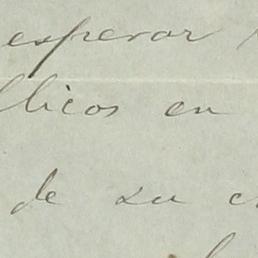 esperar
blicos en
de su c